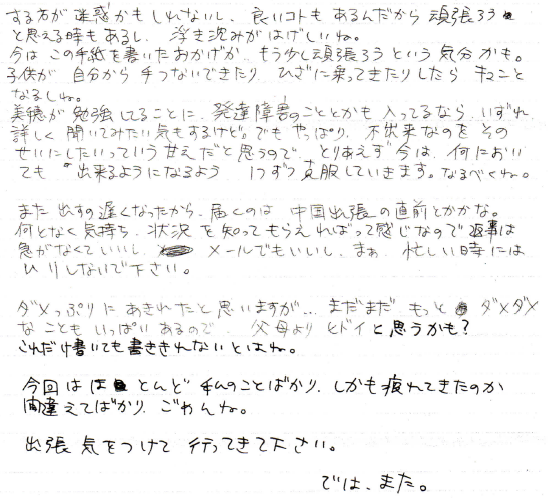 する方が迷惑かもしれないし、良いコトもあるんだから頑張ろう
と思える時もあるし、浮き沈みがはげしいね。
今はこの手紙を書いたおかげか、もう少し頑張ろうという気分かも。
子供が自分から手つないできたり、ひざに乗ってきたりしたらキュンと
なるしね。
美穂が勉強してることに、発達障害のこととかも入ってるなら、いずれ
詳しく聞いてみたい気もするけど。でもやっぱり、不出来なのをその
せいにしたいっていう甘えだと思うので、とりあえず今は、何におい
ても“出来るようになるよう1つずつ克服していきます。なるべくね。
また出すの遅くなったから、届くのは中国出張の直前とかかな。
何となく気持ち、状況を知ってもらえればって感じなので返事は
急がなくていいし、メールでもいいし、まぁ、忙しい時には
ムリしないで下さい。
ダメっぷりにあきれたと思いますが…まだまだもっとダメダメ
なこともいっぱいあるので、父母よりヒドイと思うかも？
これだけ書いても書ききれないとはね。
今回はほとんど私のことばかり、しかも疲れてきたのか
間違えてばかり、ごめんね。
出張気をつけて行ってきて下さい。
では、また。